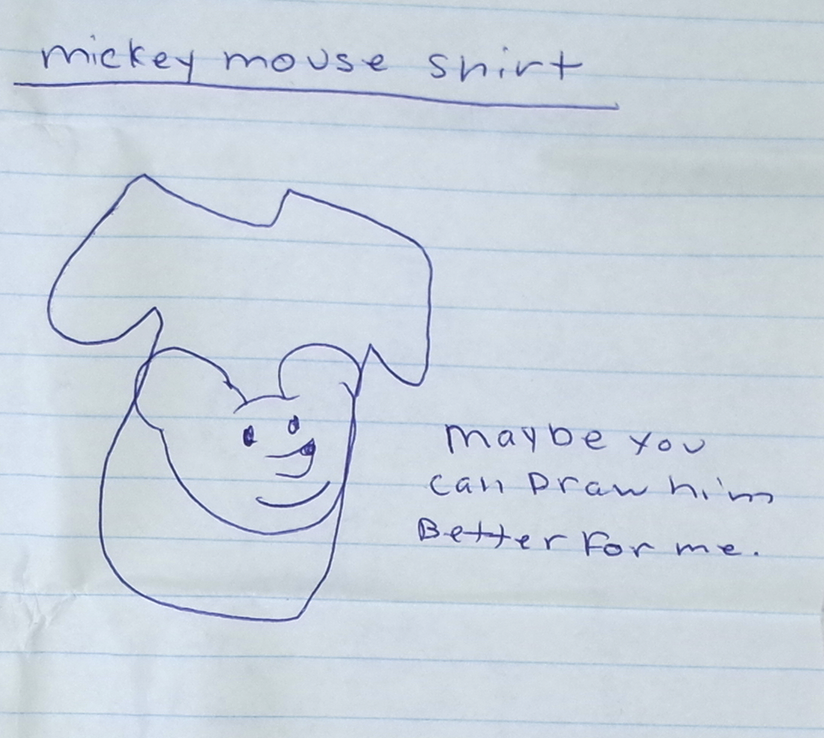 mickey mouse shirt
maybe you
can Draw him
Better For me.